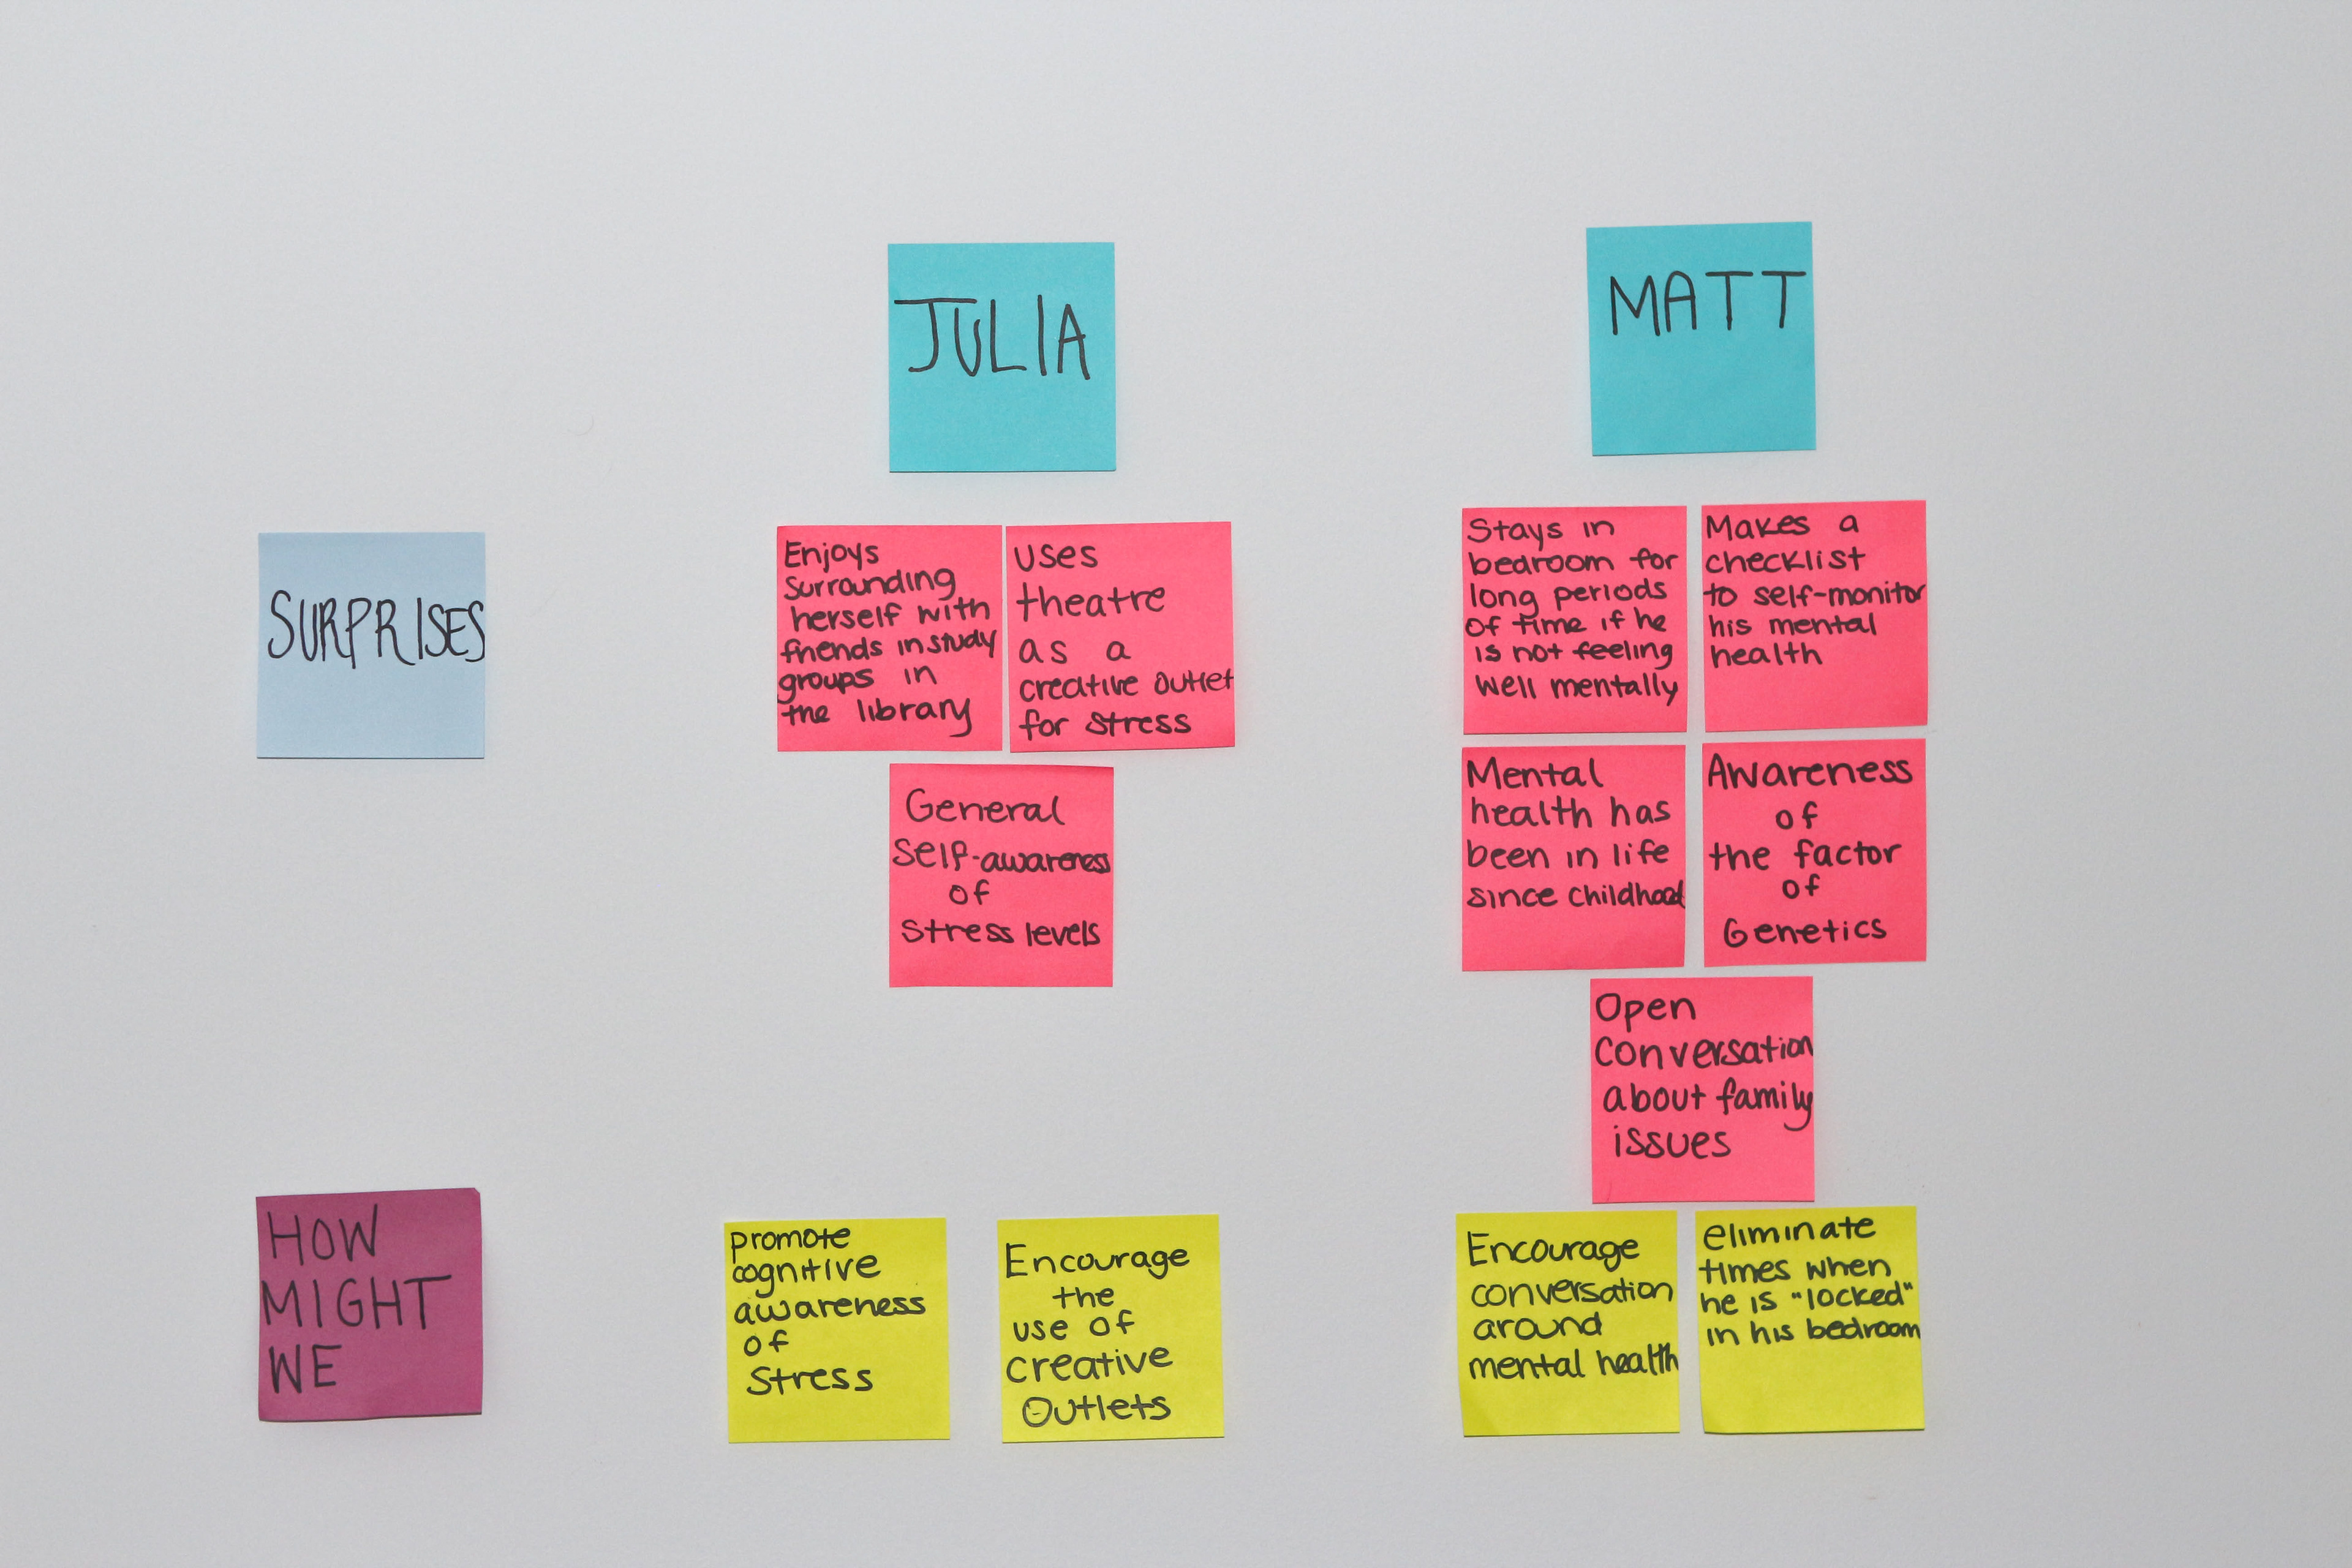 JULIA
MATT
SURPRISES
Enjoys
surrounding
herself with
friends in study
groups in
the library
uses
theatre
as a
creative outlet
for stress
General
self-awareness
of
stress levels
Stays in
bedroom for
long periods
of time if he
is not feeling
well mentally
Makes a
checklist
to self-monitor
his mental
health
Mental
health has
been in life
since childhood
Awareness
of
the factor
of
Genetics
Open
conversation
about family
issues
HOW
MIGHT
WE
promote
cognitive
awareness
of
stress
Encourage
the
use of
creative
outlets
Encourage
conversation
around
mental health
eliminate
times when
he is "locked"
in his bedroom